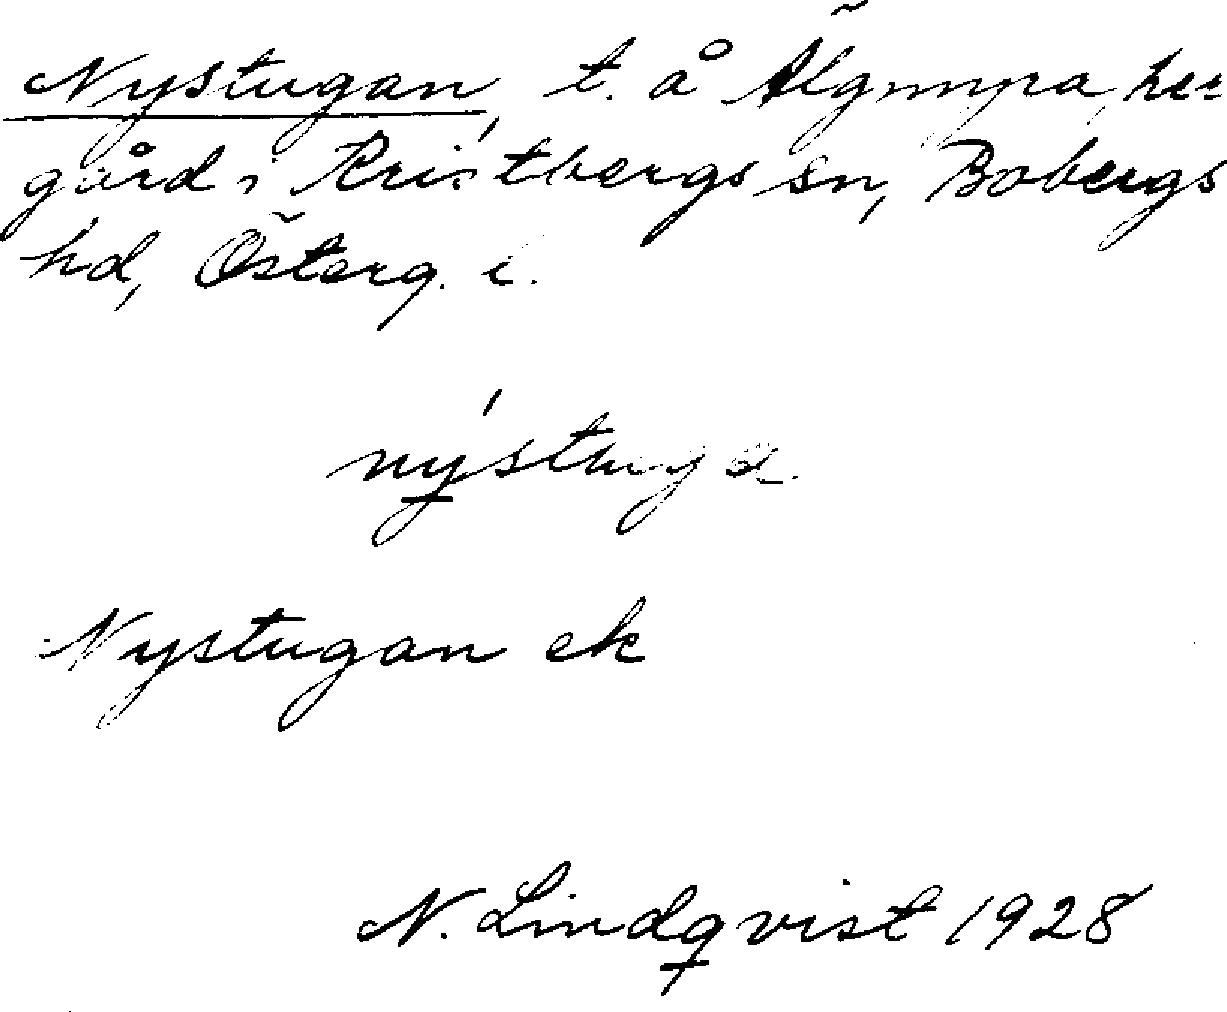 Nystugan, t. å Älgmyra, her-
gård i Kristbergs sn, Bobergs
hd, Österg. l.
nýstuga.
Nystugan ek
N. Lindqvist 1928